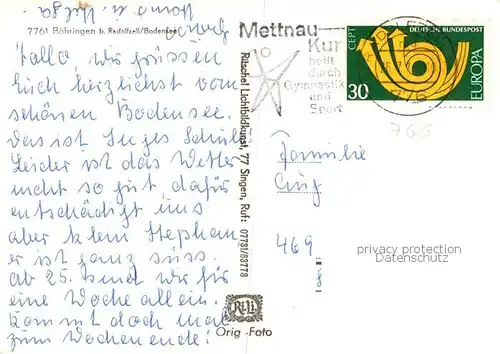 Mama u. Helga
7761 Böhringen b. Radolfzell/Bodensee
Hallo, wir grüssen
euch herzlichst vom
schönen Bodensee.
Das ist Inges Schule
Leider ist das Wetter
nicht so gut, dafür
entschädigt uns
aber klein Stephan
er ist ganz süss.
Ab 25. sind wir für
eine Woche allein.
Kommt doch mal
zum Wochenende!
Ritschel Lichtbildkunst, 77 Singen, Ruf: 07731/63778
Mettnau
Kur
heilt
durch
Gymnastik
und
Sport
CEPT
DEUTSCHE BUNDESPOST
30
EUROPA
766
Familie
469
privacy protection
Datenschutz
RiLi
Orig.-Foto